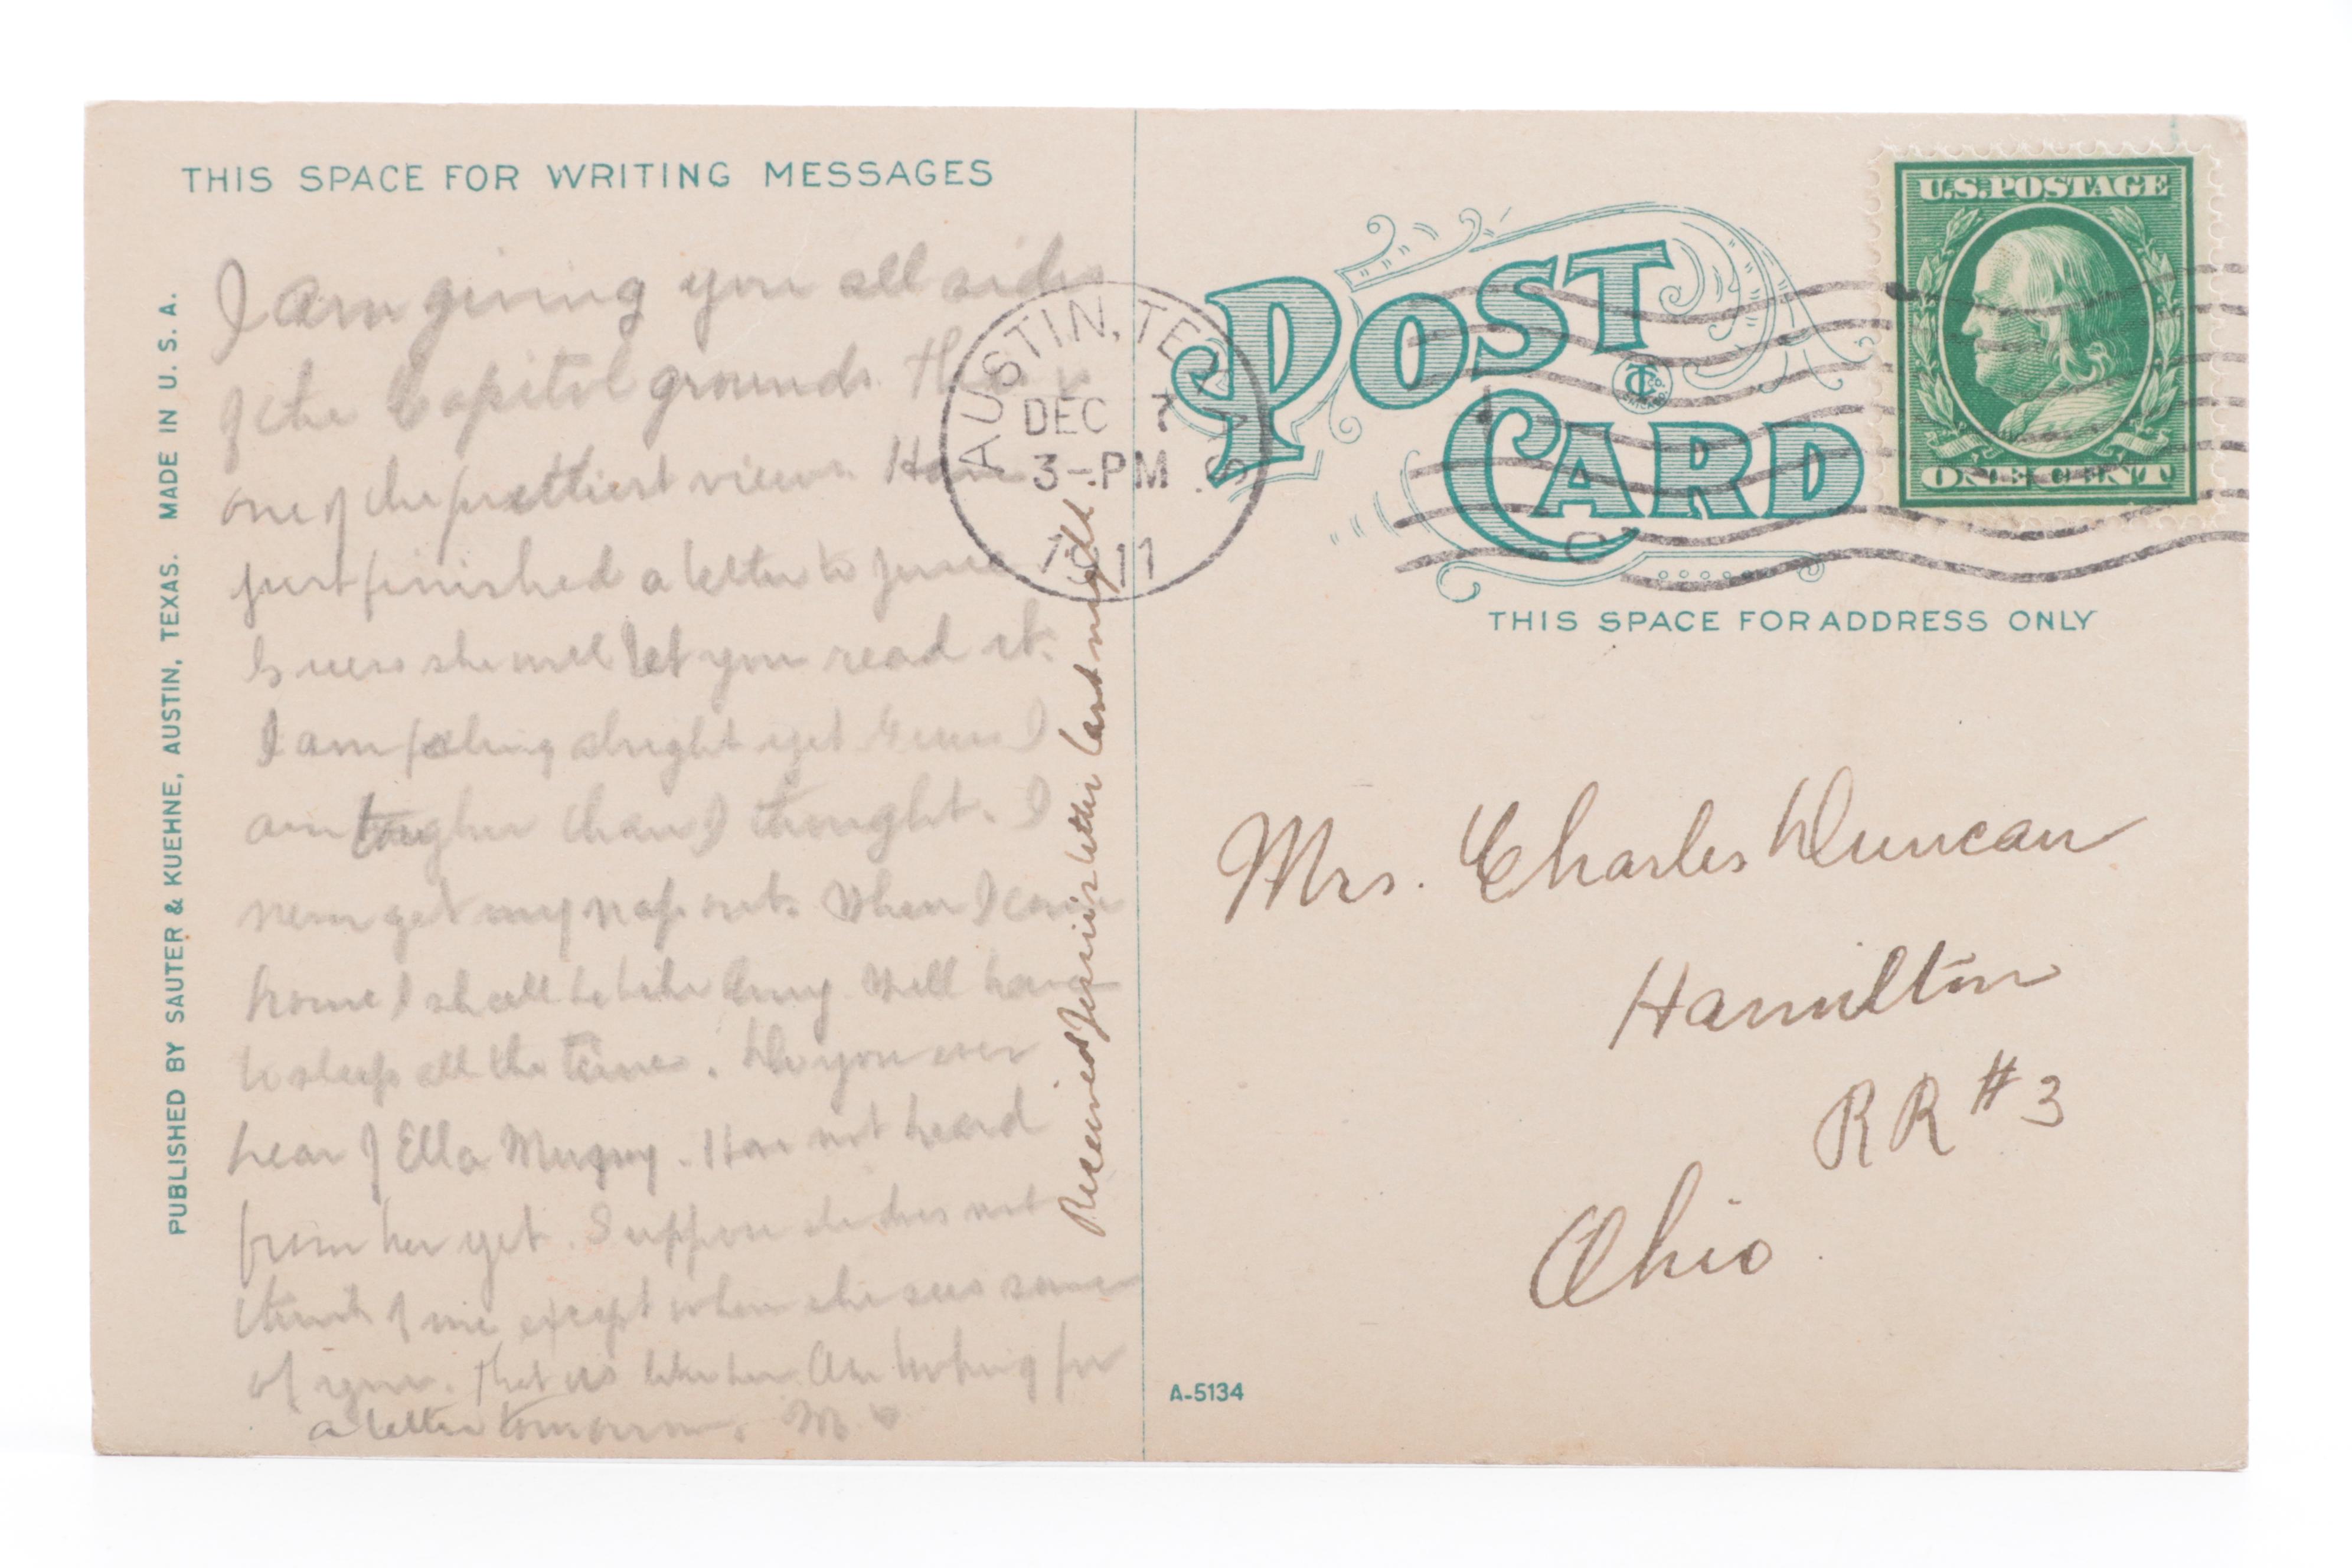 THIS SPACE FOR WRITING MESSAGES
I am giving you all sides
of the Capitol grounds. This is
one of the prettiest views. Have
just finished a letter to Jessie
Guess she will let you read it.
I am feeling alright yet Guess I
am tougher than I thought. I
never get my nap out. When I come
home I shall be like Amy. Will have
to sleep all the time. Do you ever
hear of Ella. Have not heard
from her yet. Suppose she does not
think of me except when she sees some
of you. That is like her. Am looking for
a letter tomorrow. M.
Received Jessie's letter last night
PUBLISHED BY SAUTER & KUEHNE, AUSTIN, TEXAS. MADE IN U. S. A.
AUSTIN, TEXAS
DEC 7
3-PM
1911
POST
CARD
U.S.POSTAGE
ONE CENT
THIS SPACE FOR ADDRESS ONLY
Mrs. Charles Duncan
Hamilton
RR #3
Ohio
A-5134